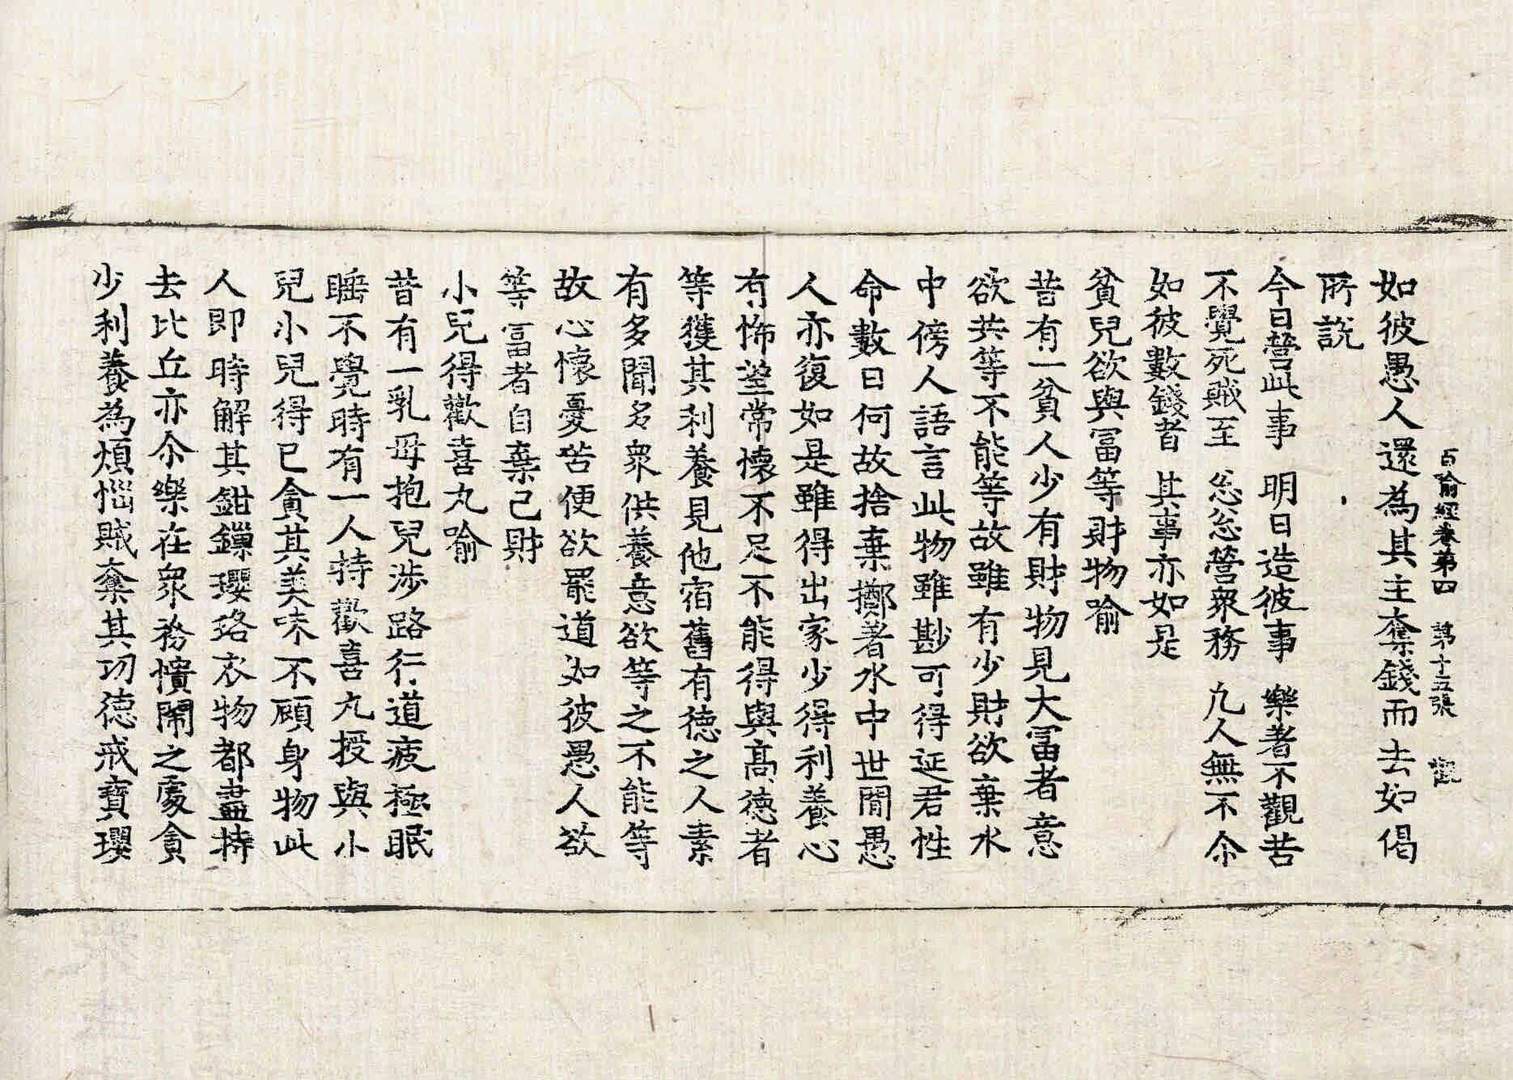 百喻經卷第四 第十五張
如彼愚人還為其主奪錢而去如偈
所說
今日營此事 明日造彼事 樂者不觀苦
不覺死賊至 怱怱營衆務 凢人無不尒
如彼數錢者 其事亦如是
貧兒欲與冨等財物喻
昔有一貧人少有財物見大冨者意
欲共等不能等故雖有少財欲棄水
中傍人語言此物雖尠可得延君性
命數日何故捨棄擲著水中世閒愚
人亦復如是雖得出家少得利養心
有悕望常懷不足不能得與髙德者
等獲其利養見他宿舊有德之人素
有多聞名衆供養意欲等之不能等
故心懷憂苦便欲罷道如彼愚人欲
等冨者自棄己財
小兒得歡喜丸喻
昔有一乳母抱兒涉路行道疲極眠
睡不覺時有一人持歡喜丸授與小
兒小兒得已貪其美味不顧身物此
人即時解其鉗鏁瓔珞衣物都盡持
去比丘亦尒樂在衆務憒閙之處貪
少利養為煩惱賊奪其功德戒寶瓔